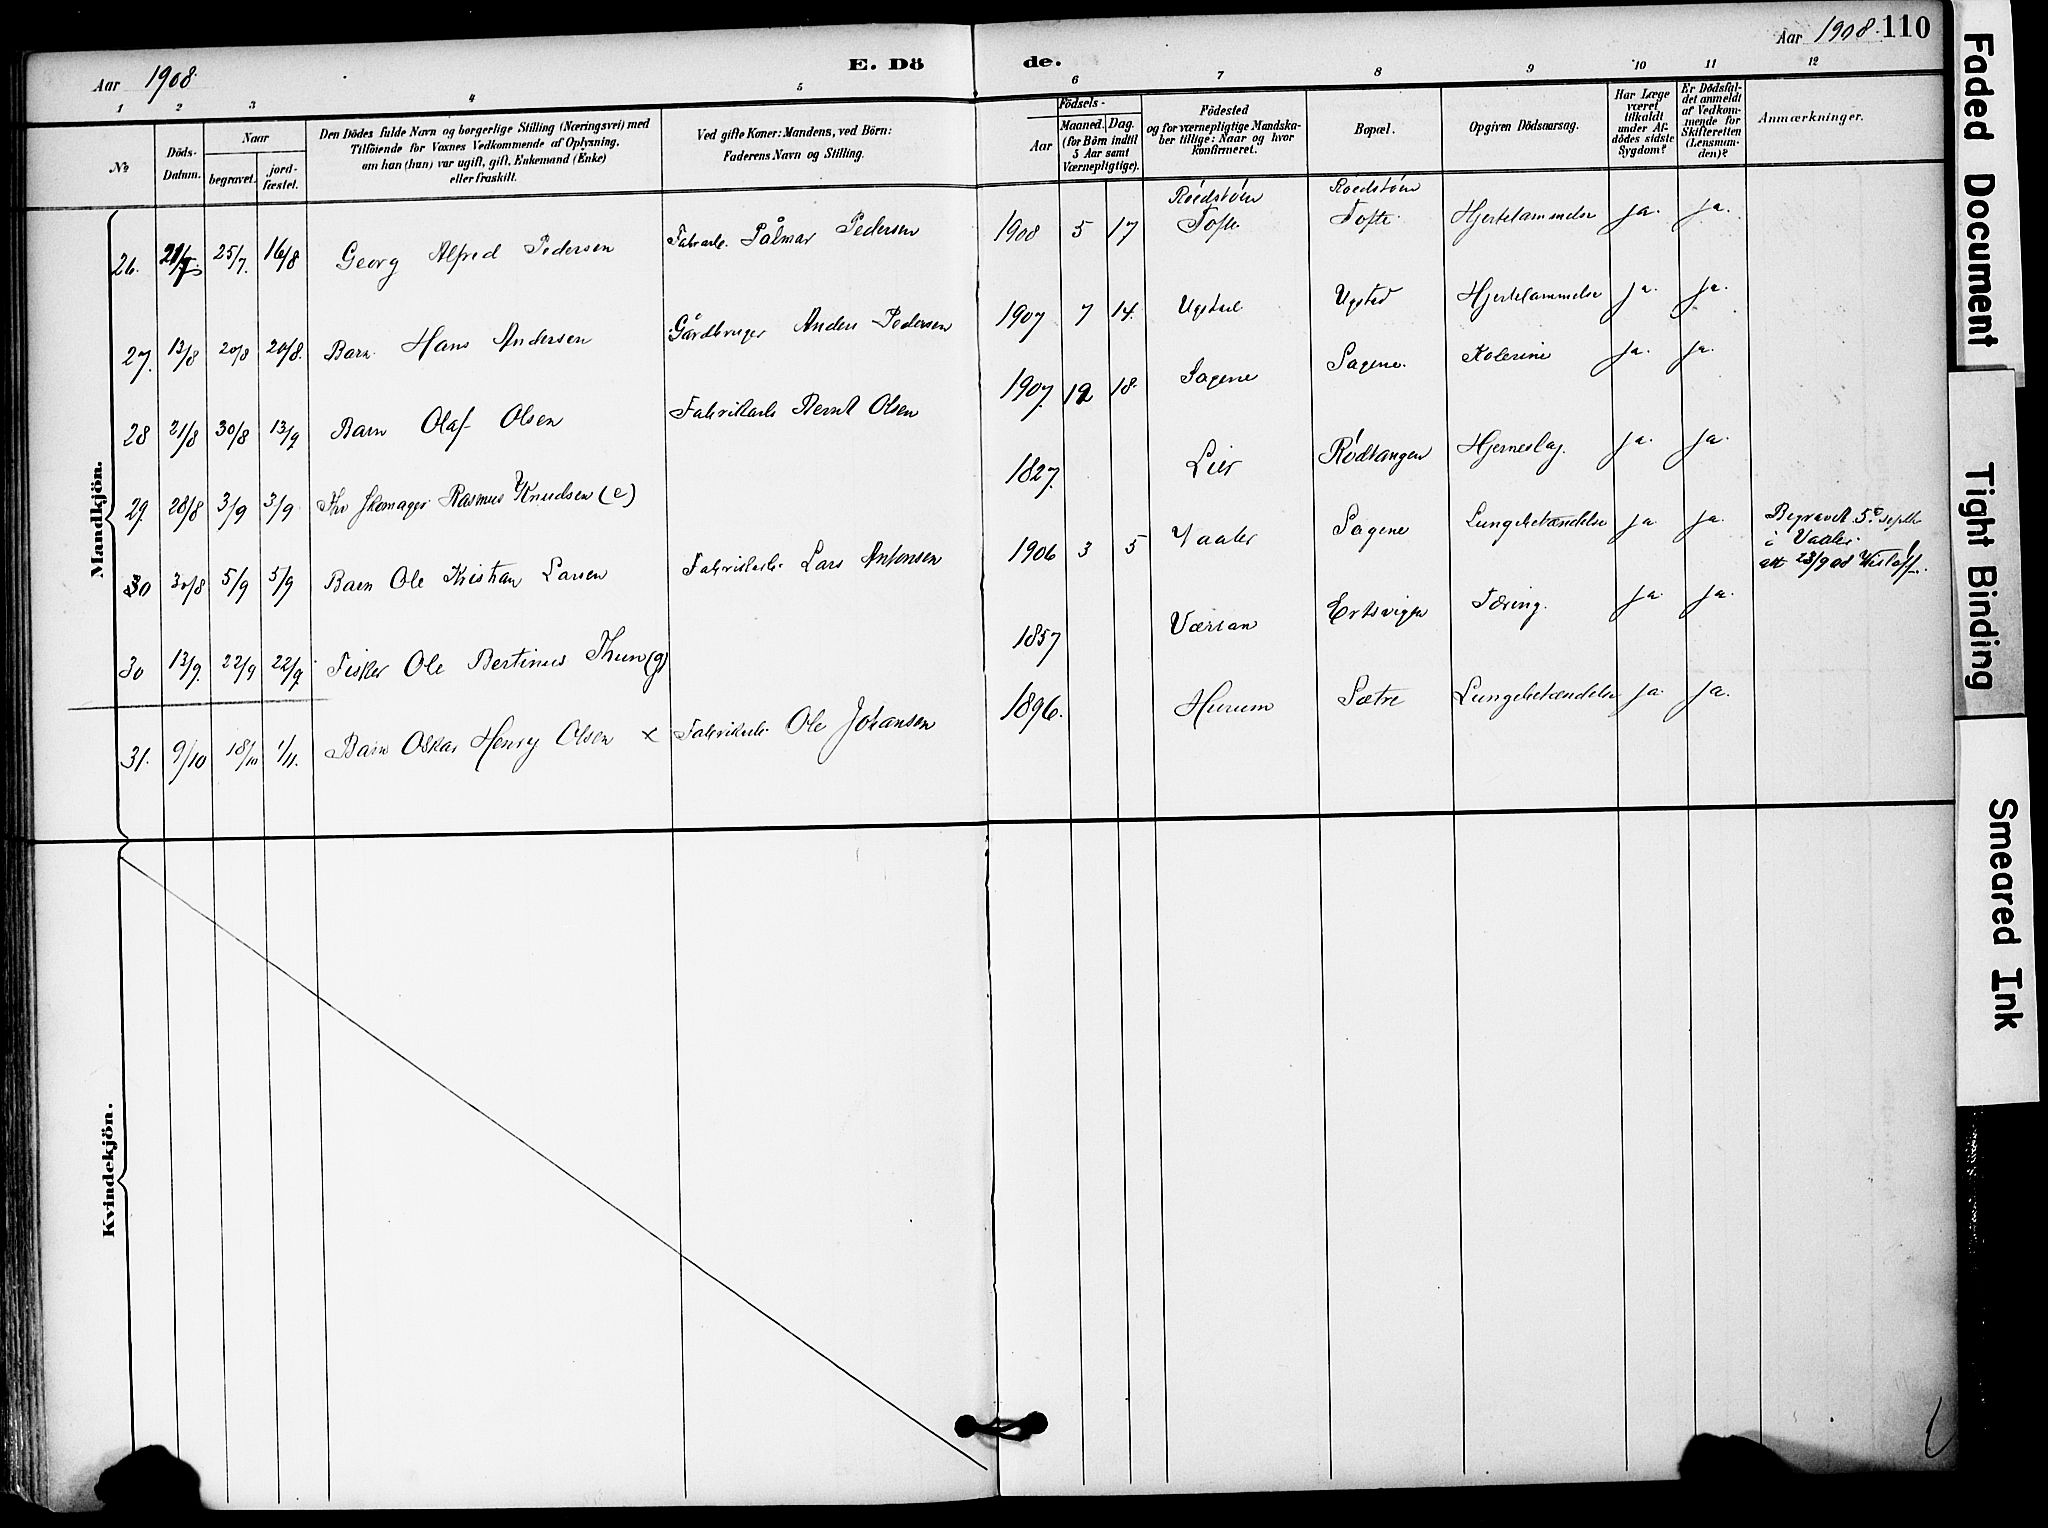 Aar 1908. E. Dö de. Aar 1908. 110
1 2 3 4 5 6 7 8 9 10 11 12
No
Döds-Datum.
Naar
begravet.
jord-fæstet.
Den Dödes fulde Navn og borgerlige Stilling (Næringsvei) med
Tilföiende for Voxnes Vedkommende af Oplysning,
om han (hun) var ugift, gift, Enkemand (Enke)
eller fraskilt.
Ved gifte Koner: Mandens, ved Börn:
Faderens Navn og Stilling.
Födsels-
Aar
Maaned. Dag.
(for Börn indtil
5 Aar samt
Værnepligtige).
Födested
og for værnepligtige Mandska-
ber tillige: Naar og hvor
konfirmeret.
Bopæl.
Opgiven Dödsaarsag.
Har Læge
været
tilkaldt
under Af-
dödes sidste
Sygdom?
Er Dödsfal-
det anmeldt
af Vedkom-
mende for
Skifteretten
(Lensman-
den)?
Anmærkninger.
Mandkjön.
26. 21/7 25/7. 16/8 Georg Alfred Pedersen Fabrarb. Pålmar Pedersen 1908 5 17 Rödstöen Tofte Rödstöen Tofte. Hjertelammelse ja. ja.
27. 13/8 20/8 20/8. Barn Hans Andersen Gårdbruger Anders Pedersen 1907 7 14. Ugstad Ugstad Hjertelammelse ja. ja.
28 21/8 30/8 13/9 Barn Olaf Olsen Fabrikarb Bernt Olsen 1907. 12 18. Sagene Sagene. Kolerine ja. ja.
29. 28/8 3/9 3/9. Fhv Skomager Rasmus Knudsen (e) 1827. Lier Rödtangen Hjerneslag. ja. ja.
30 30/8 5/9 5/9 Barn Ole Kristian Larsen Fabrikarb. Lars Antonsen 1906 3 5 Vaaler Sagene Lungebetændelse ja ja. Begravet 5te septbr
i Vaaler.
att 23/9 08
30 13/9. 22/9 22/9. Fisker Ole Bertinus Thun (g) 1857 Værran Ertsvigen Tæring. ja ja.
31. 9/10 18/10 1/11. Barn Oskar Henry Olsen x Fabrikarb. Ole Johansen 1896. Hurum Sætre Lungebetændelse ja. ja.
Kvindekjön.
Faded Document
Tight Binding
Smeared Ink